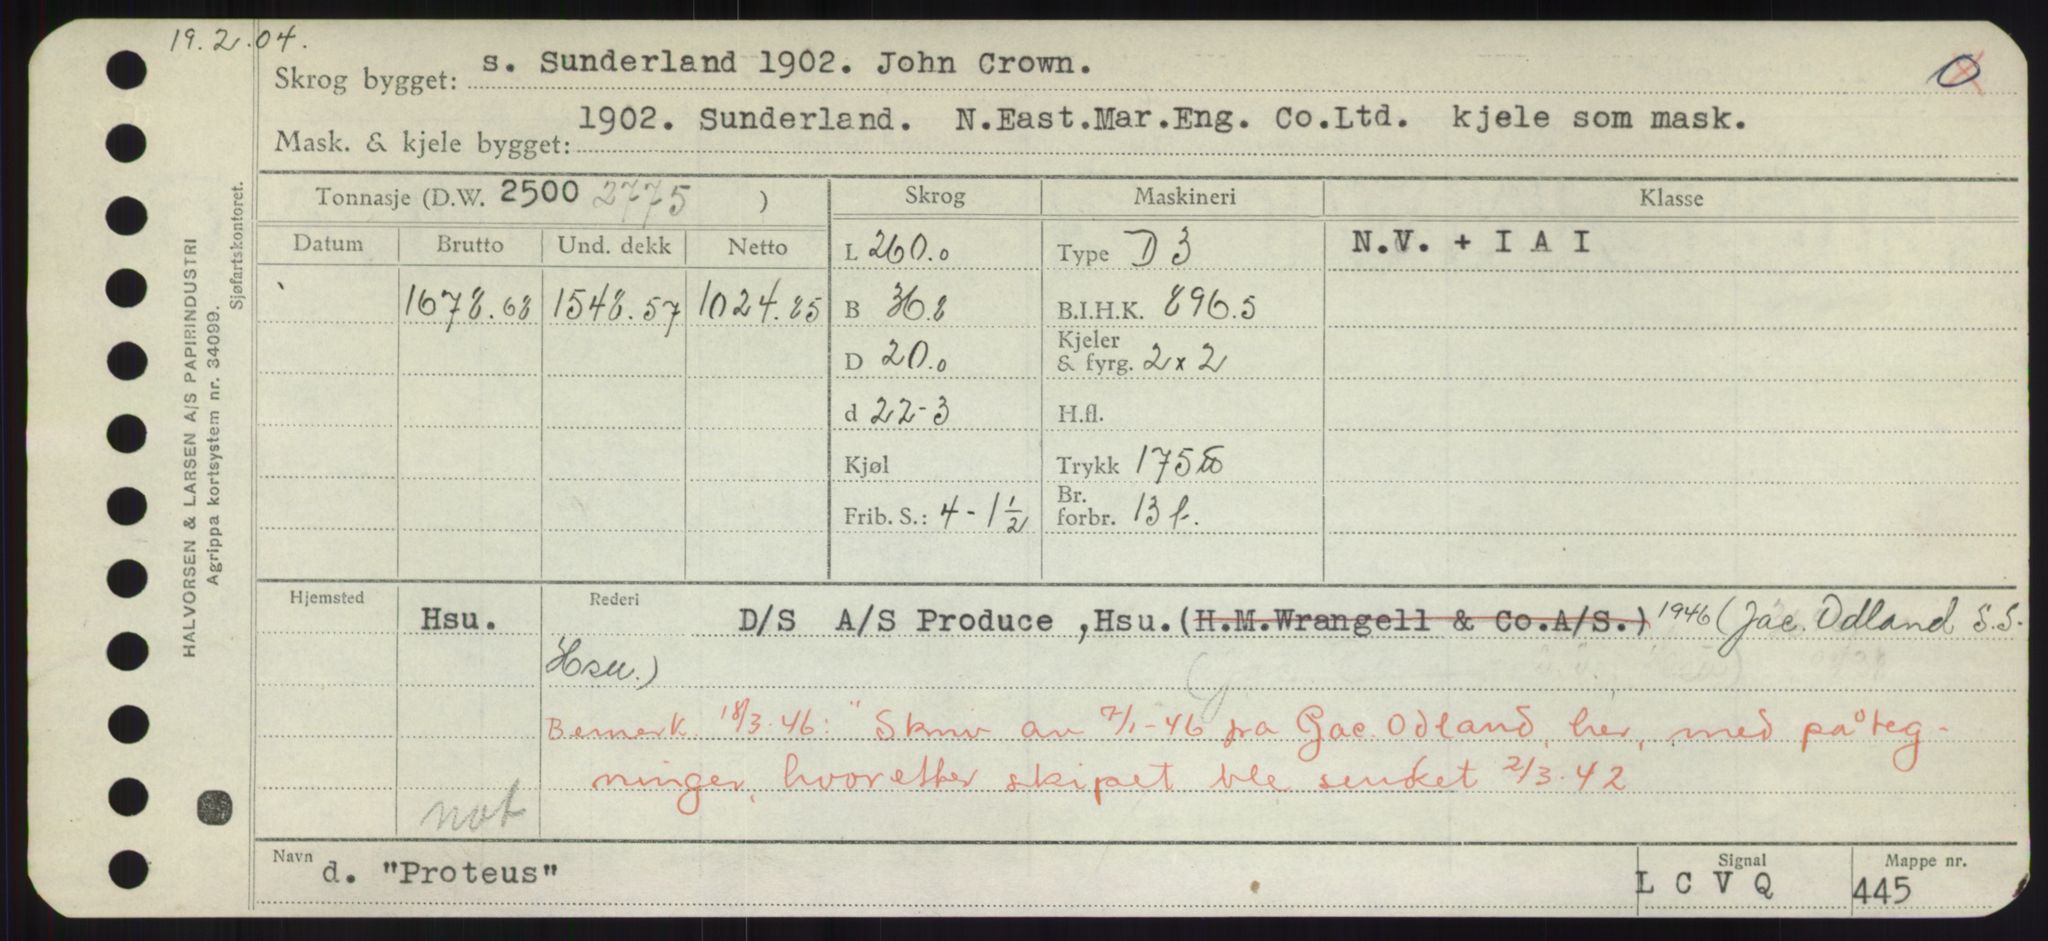 19.2.04.
Skrog bygget: s. Sunderland 1902. John Crown. 0
Mask. & kjele bygget: 1902. Sunderland. N.East.Mar.Eng. Co.Ltd. kjele som mask.
Tonnasje (D.W. 2500 2775 ) Skrog Maskineri Klasse
Datum Brutto Und. dekk Netto L 260.0 Type D 3 N.V. + I A I
1678.68 1548.57 1024.85 B 36.8 B.I.H.K. 896.5
D 20.0 Kjeler & fyrg. 2 x 2
d 22-3 H.fl.
Kjøl Trykk 175 lb
Frib. S.: 4 - 1 1/2 Br. forbr. 13 f.
Hjemsted Hsu. Rederi D/S A/S Produce ,Hsu.(H.M.Wrangell & Co.A/S.) 1946 (Jac. Odland S.S.
Hsu.)
Bemerk. 18/3.46: " Skriv av 7/1-46 fra Jac. Odland, her, med påteg-
ninger, hvoretter skipet ble senket 2/3.42
not
Navn d. "Proteus" Signal L C V Q Mappe nr. 445
HALVORSEN & LARSEN A/S PAPIRINDUSTRI
Agrippa kortsystem nr. 34099.
Sjøfartskontoret.